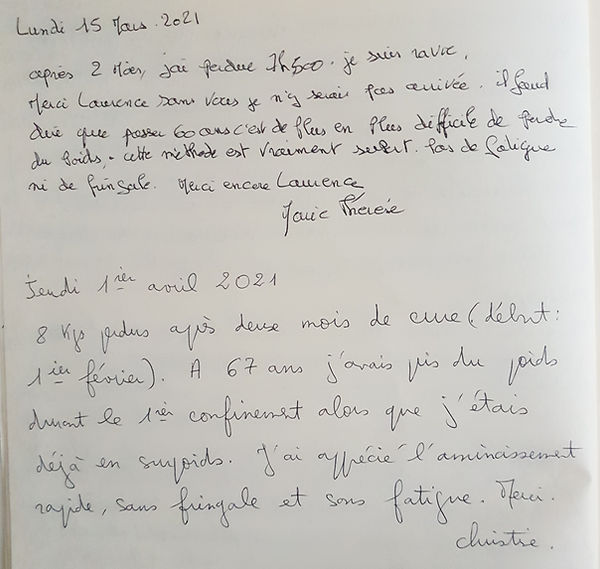 Lundi 15 Mars. 2021
après 2 Mois, j'ai perdue 7k500. je suis ravie.
Merci Laurence sans vous je n'y serais pas arrivée. il faud
dire que passer 60 ans c'est de plus en plus difficile de perdre
du poids. cette méthode est vraiment . Pas de fatigue
ni de fringale. Merci encore Laurence
Marie Thérèse
Jeudi 1ier avril 2021
8 Kgs perdus après deux mois de cure (début :
1ier février). A 67 ans j'avais pis du poids
durant le 1ier confinement alors que j'étais
déjà en surpoids. J'ai apprécié l'amincissement
rapide, sans fringale et sans fatigue. Merci.
Christie.